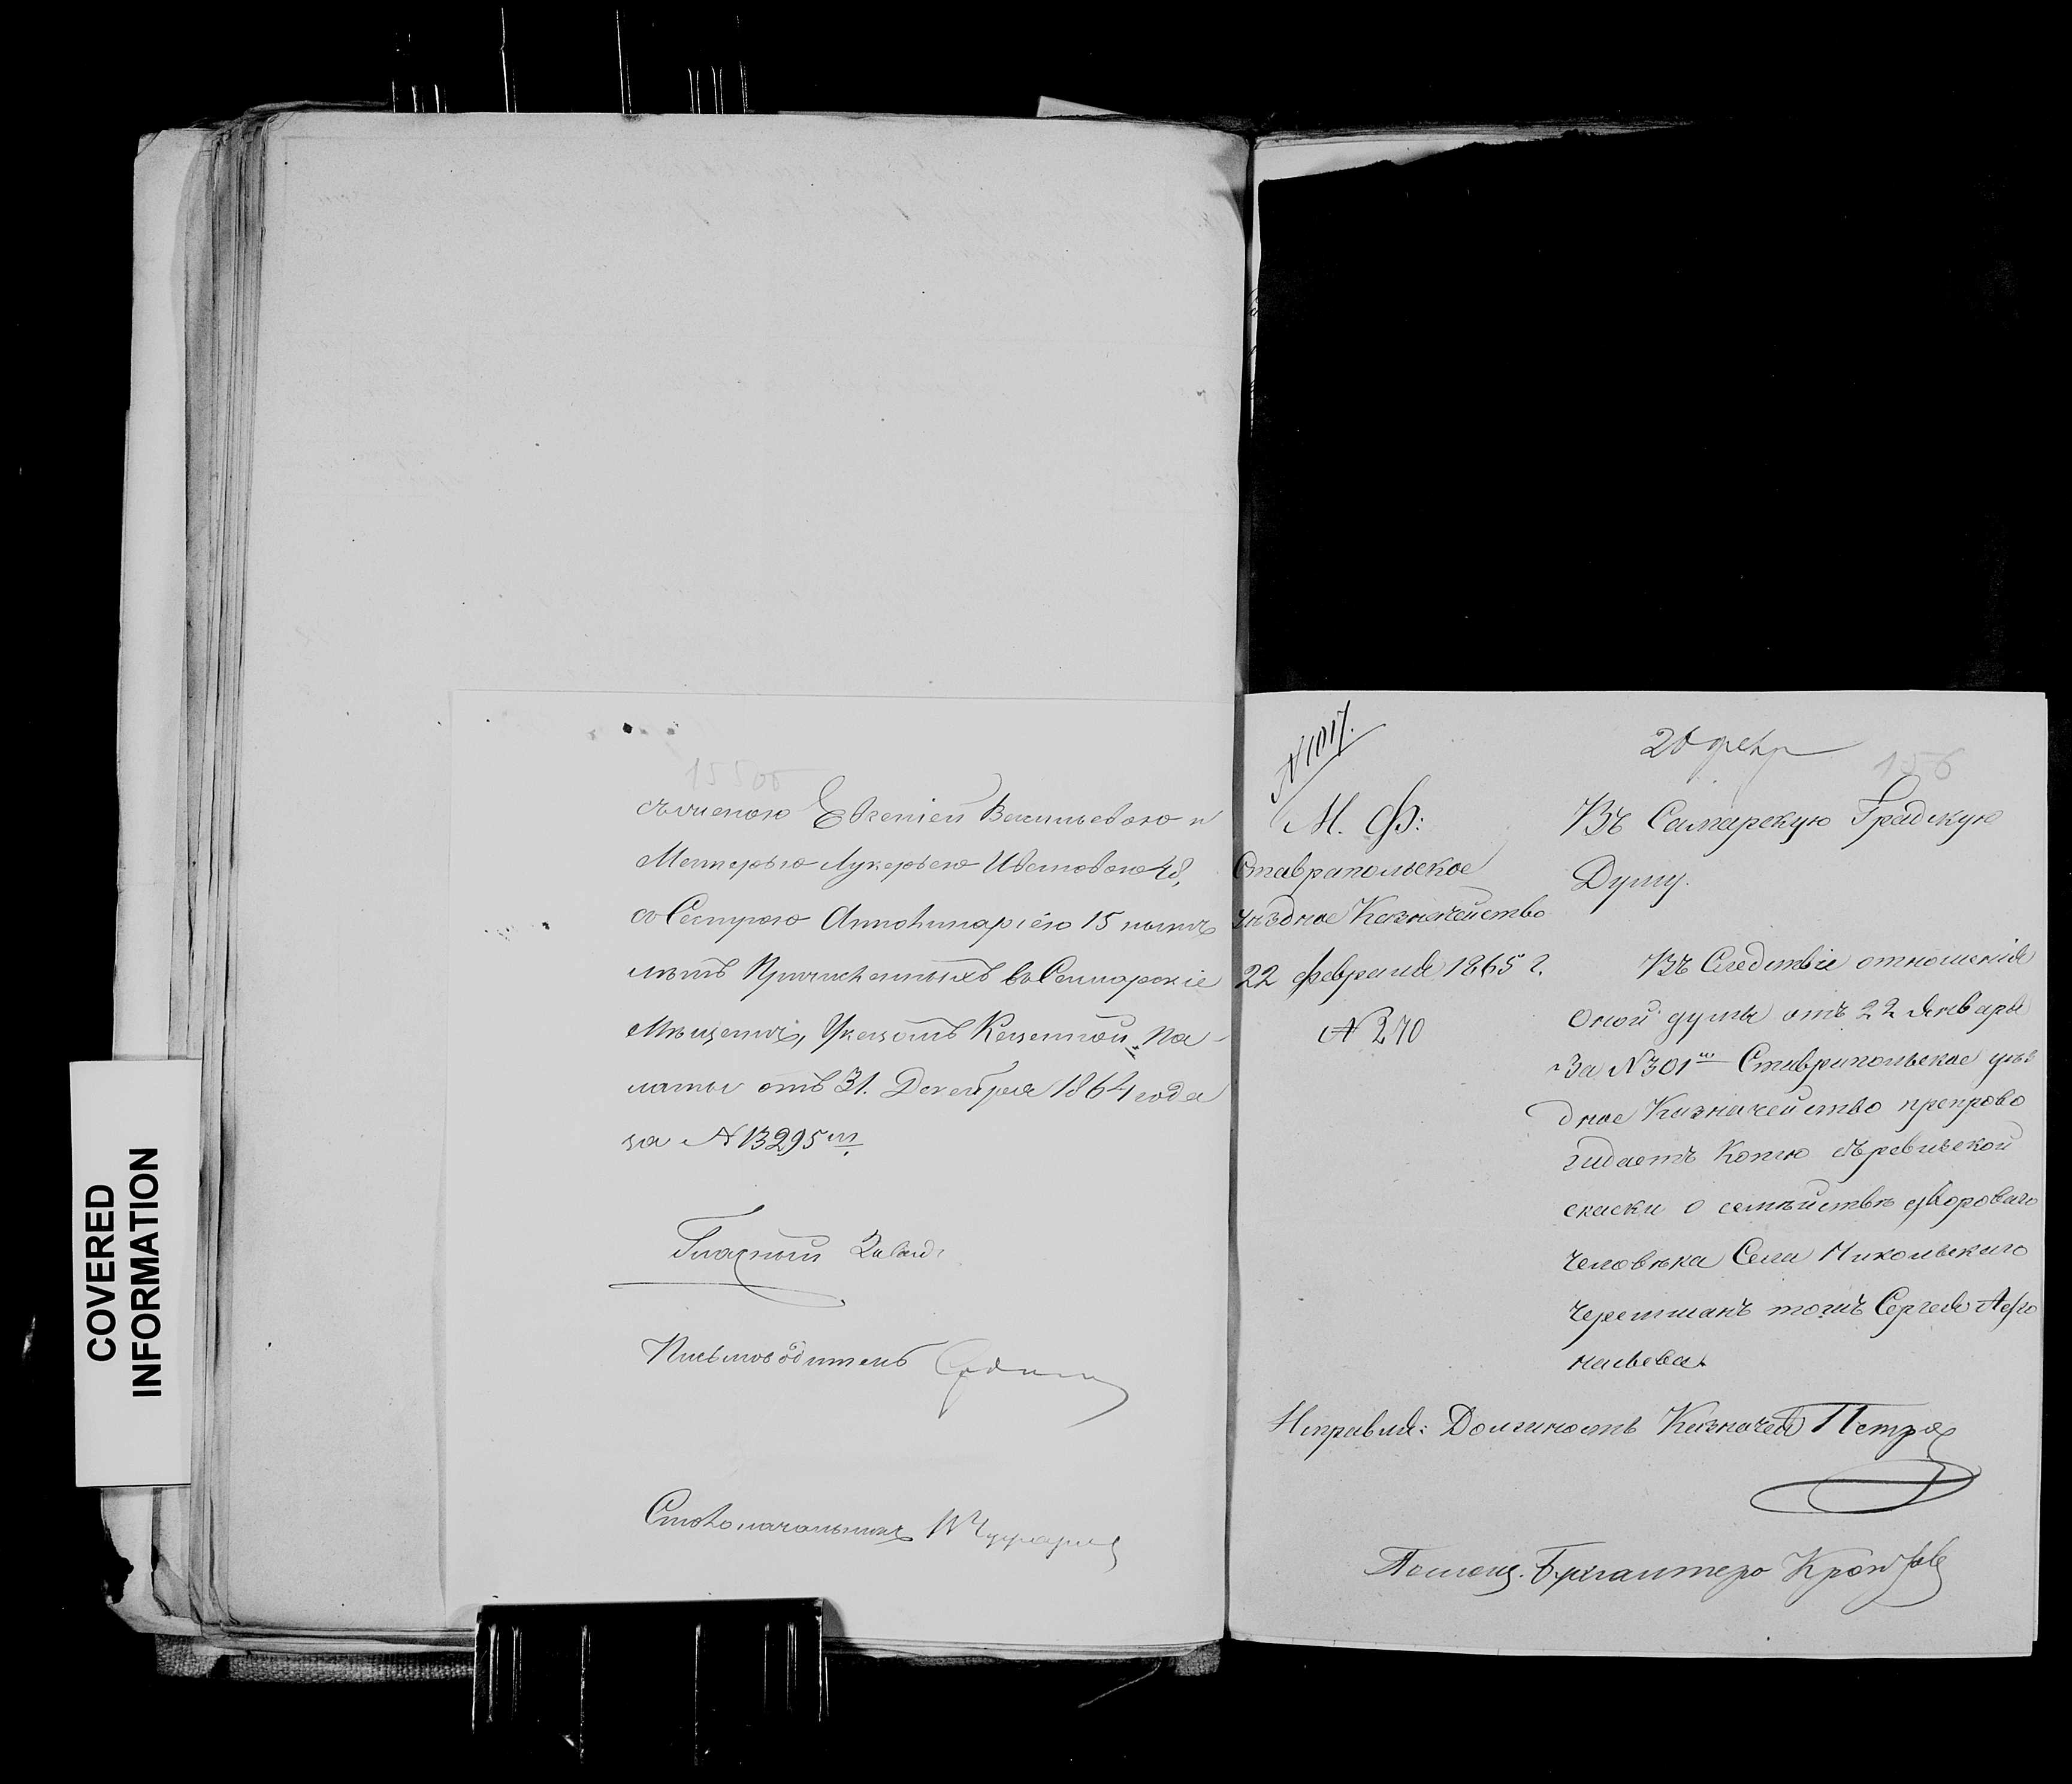 COVERED
INFORMATION
155 об
съ женою Евгенiей Васильевою и
Матерью Лукерьею Ивановою 48,
съ Сестрою Апполинарiею 15
лѣтъ Причисленныхъ въ Самарскiе
Мѣщане, Указомъ Казенной Па-
латы отъ 31. Декабря 1864 года
за № 13295 м.
Гласный
Письмоводитель
Столоначальникъ
№ 1017.
28 февр
156
М. Ф:
Ставрапольское
Уѣздное Казначейство
22 февраля 1865 г.
№ 270
Въ Самарскую Градскую
Думу.
Въ Следствiе отношенiя
оной думы отъ 22 Января
За № 301 м Ставрапольское уѣз
дное Казначейство препрово
жидаетъ Копiю съ ревизской
скаски о семѣйствѣ двороваго
человѣка Села Никольскаго
Черемшанъ тожъ Сергея Афо
насьева.
Исправля: Должность Казначея Петров
Помощ. Бухгалтера